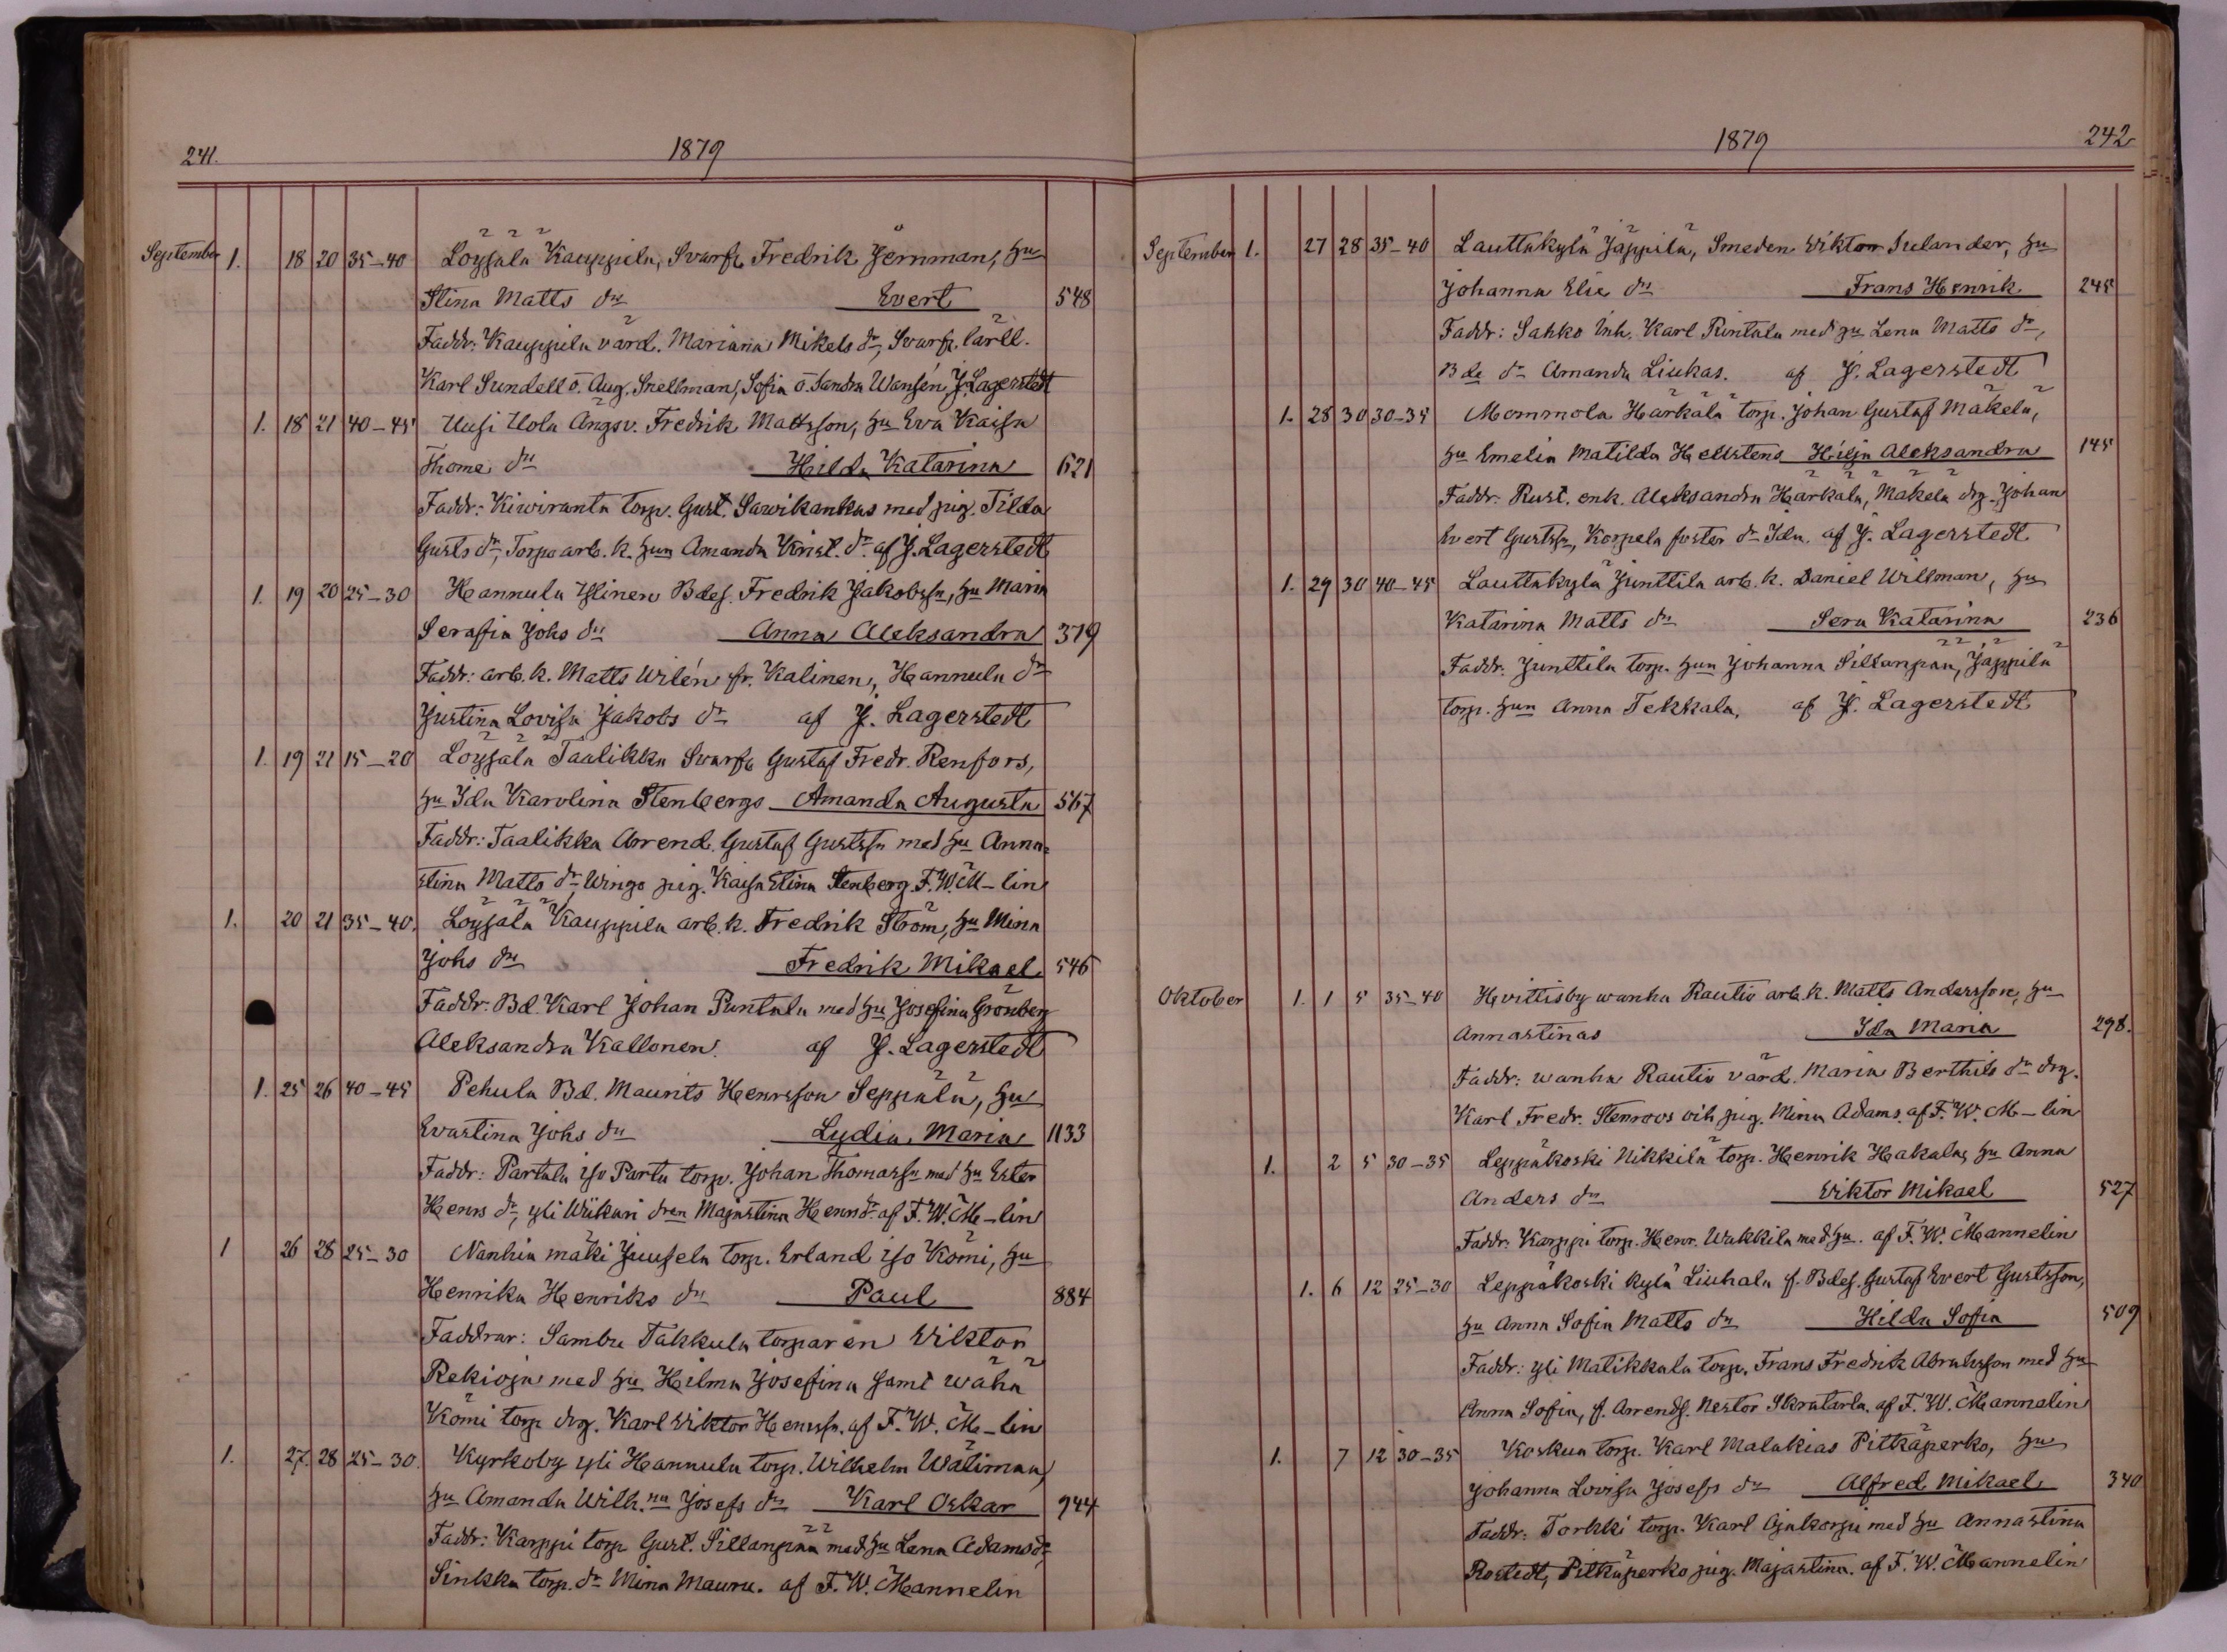 241.
1879
September 1. 18 20 35-40 Loÿjälä Kauppila, Svarfv. Fredrik Jernman, hu
Stina Matts dr Evert 548
Faddr: Kauppila värd. Mariana Mikels dr, Svarfv. lärll.
Karl Sundell o. Aug. Snellman, Sofia o. Sandra Wansén, J. Lagerstedt
1. 18 21 40-45 Uusi Uola Ängsv. Fredrik Mattsson, hu Eva Kaisa
Thome dr Hilda Katarina 621
Faddr: Kiwiranta torp. Gust. Sawikankas med pig. Tilda
Gusts dr, Torpo arb. k. hun Amanda Krist. dr. af J. Lagerstedt
1. 19 20 25-30 Hannula Ylinen Bdes. Fredrik Jakobssn, hu Maria
Serafia Johs dr Anna Aleksandra 379
Faddr: arb. k. Matts Wilén fr. Kalinen, Hannula dr
Justina Lovisa Jakobs dr af J. Lagerstedt
1. 19 21 15-20 Loÿjälä Taalikka Svarfv Gustaf Fredr. Renfors,
hu Ida Karolina Stenbergs Amanda Augusta 567
Faddr: Taalikka Arrend. Gustaf Gustssn med hu Anna=
stina Matts dr, Wingo pig. Kaisa Stina Stenberg. F. W. M-lin
1. 20 21 35-40. Loÿjälä Kauppila arb. k. Fredrik Ström, hu Mina
Johs dr Fredrik Mikael 546
Faddr: Bd. Karl Johan Puntala med hu Josefina Grönberg
Aleksandra Kallonen. af J. Lagerstedt
1. 25 26 40-45 Pehula Bd. Maurits Henrsson Seppälä, hu
Evastina Johs dr Lydia Maria 1133
Faddr: Partala iso Partu torp. Johan Thomassn med hu Ester
Henrs dr, yli Wiikari dren Majastina Henrs dr af F. W. M-lin
1 26 28 25-30 Nanhia mäki Juusela torp. Erland iso Kömi, hu
Henrika Henriks dr Paul 884
Faddrar: Sambu Takkula torparen Wiktor
Rekioja med hu Hilma Josefina samt wähä
Kömi torp drg. Karl Wiktor Henrssn. af F. W. M-lin
1. 27. 28 25-30. Kyrkoby yli Hannula torp. Wilhelm Wätimaa,
hu Amanda Wilh.na Josefs dr Karl Oskar 944
Faddr: Karppi torp Gust. Sillanpää med hu Lena Adams dr
Sinkka torp. dr Mina Mauru. af F. W. Mannelin
1879
242
September 1. 27 28 35-40 Lauttakylä Jäppilä, Smeden Wiktor Sulander, hu
Johanna Elia dr Frans Henrik 245
Faddr: Sahko Inh. Karl Rintala med hu Lena Matts dr,
Bde dr Amanda Liukas. af J. Lagerstedt
1. 28 30 30-35 Mommola Härkälä torp. Johan Gustaf Mäkelä,
hu Emelia Matilda Hellstens Hilja Aleksandra 145
Faddr: Rust. enk. Aleksandra Härkälä, Mäkelä drg. Johan
Evert Gustssn, Korpela foster dr Ida. af J. Lagerstedt
1. 29 30 40-45 Lauttakylä Junttila arb. k. Daniel Willman, hu
Katarina Matts dr Sera Katarina 236
Faddr. Junttila torp. hun Johanna Sillanpää, Jäppilä
torp. hun Anna Tekkala. af J. Lagerstedt
Oktober 1. 1 5 35-40 Hvittisby wanha Rautio arb. k. Matts Andersson, hu
Annastinas Ida Maria 298.
Faddr: wanha Rautio värd. Maria Berthils dr drg.
Karl Fredr. Stenroos och pig. Mina Adams. af F. W. M-lin
1. 2 5 30-35 Leppäkoski Nikkilä torp. Henrik Hakala, hu Anna
Anders dr Wiktor Mikael 527
Faddr: Karppi torp. Henr. Wakkila med hu. af F. W. Mannelin
1. 6 12 25-30 Leppäkoski kylä Liuhala f. Bdes. Gustaf Evert Gustsson,
hu Anna Sofia Matts dr Hilda Sofia 509
Faddr: yli Matikkala torp. Frans Fredrik Abrahsson med hu
Anna Sofia, f. Arends. Nestor Skrätarla. af F. W. Mannelin
1. 7 12 30-35 Koskua torp. Karl Malakias Pitkäperko, hu
Johanna Lovisa Josefs dr Alfred Mikael 340
Faddr: Torkki torp. Karl Ojakorpi med hu Annastina
Rostedt, Pitkäperko pig. Majastina. af F. W. Mannelin